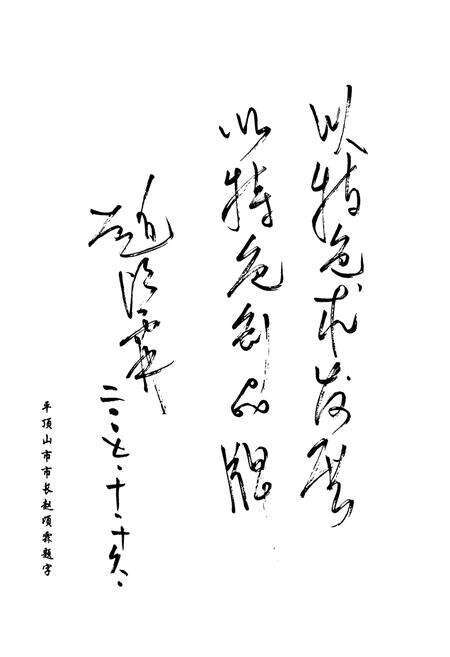 以特色求发展
以特色创品牌
赵顷霖
二〇〇七·十·十六·
平顶山市市长赵顷霖题字